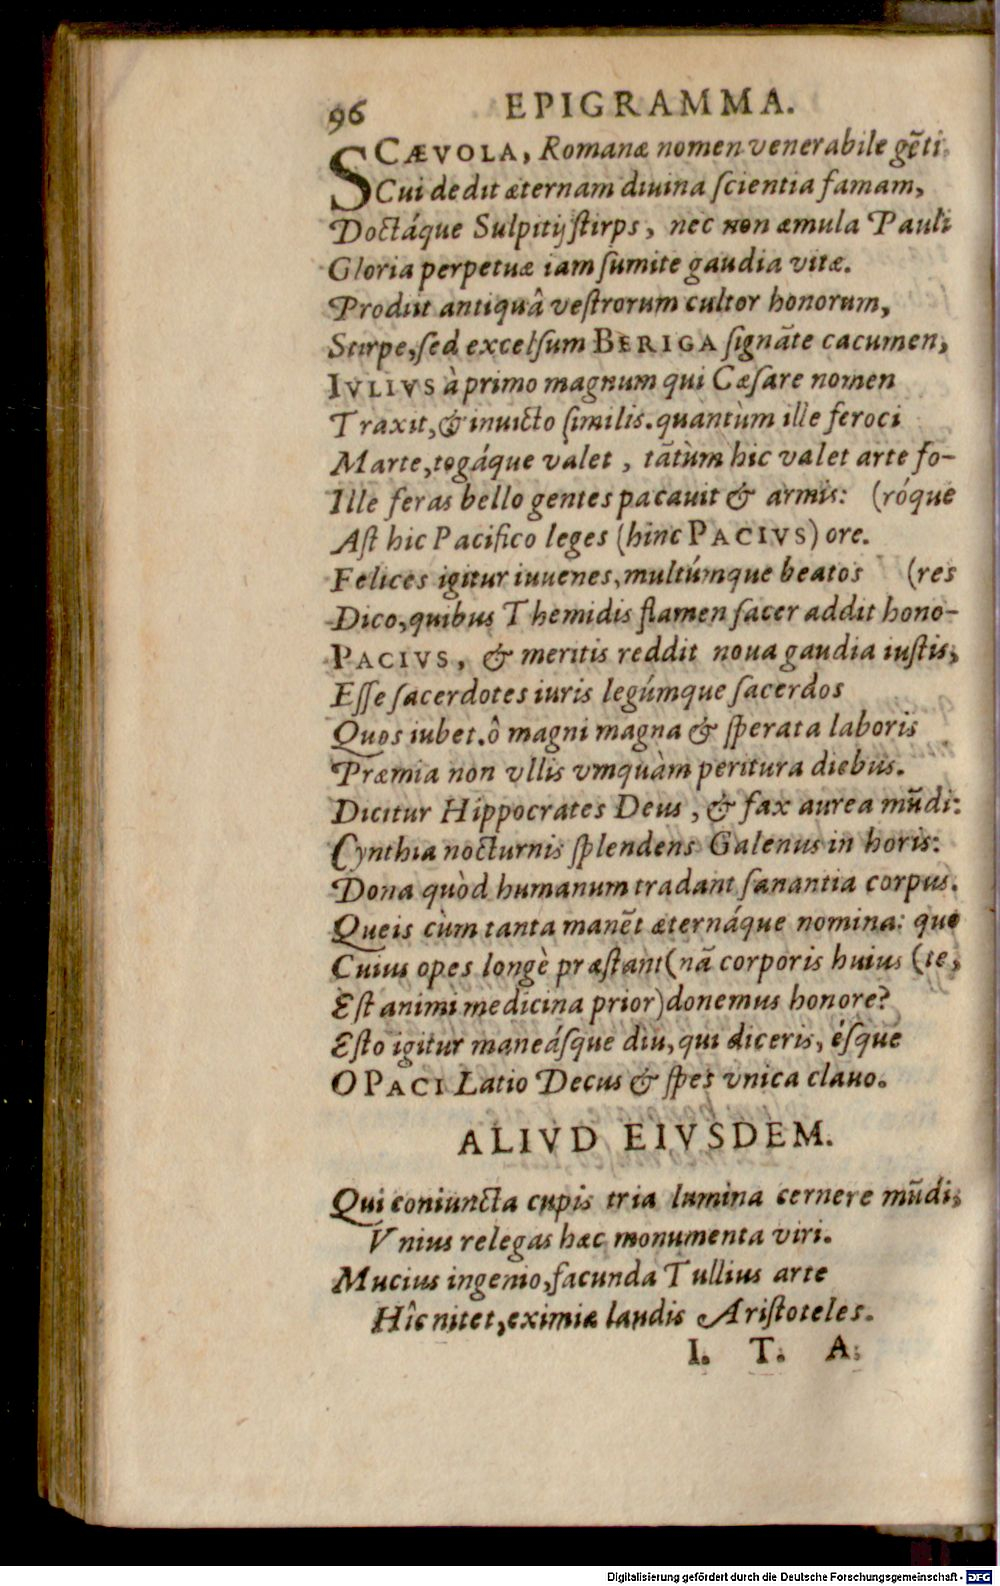 96 EPIGRAMMA.
SCÆVOLA, Romanæ nomen venerabile gẽti.
Cui dedit æternam diuina ſcientia famam,
Doctáque Sulpitij ſtirps, nec non æmula Pauli
Gloria perpetuæ iam ſumite gaudia vitæ.
Prodiit antiquâ veſtrorum cultor honorum,
Stirpe, ſed excelſum BERIGA ſignãte cacumen,
IVLIVS à primo magnum qui Cæſare nomen
Traxit, & inuicto ſimilis. quantùm ille feroci
Marte, togáque valet, tãtùm hic valet arte fo-
Ille feras bello gentes pacauit & armis: (róque
Aſt hic Pacifico leges (hinc PACIVS) ore.
Felices igitur iuuenes, multúmque beatos (res
Dico, quibus Themidis flamen ſacer addit hono-
PACIVS, & meritis reddit noua gaudia iuſtis,
Eſſe ſacerdotes iuris legúmque ſacerdos
Quos iubet. ô magni magna & ſperata laboris
Præmia non vllis vmquàm peritura diebus.
Dicitur Hippocrates Deus, & fax aurea mũdi:
Cynthia nocturnis ſplendens Galenus in horis:
Dona quòd humanum tradant ſanantia corpus.
Queis cùm tanta manẽt æternáque nomina: quo
Cuius opes longè præſtant (nã corporis huius (te,
Eſt animi medicina prior) donemus honore?
Eſto igitur maneáſque diu, qui diceris, éſque
O PACI Latio Decus & ſpes vnica clauo.
ALIVD EIVSDEM.
Qui coniuncta cupis tria lumina cernere mũdi,
Vnius relegas hæc monumenta viri.
Mucius ingenio, facunda Tullius arte
Hîc nitet, eximiæ laudis Ariſtoteles.
I. T. A.
Digitalisierung gefördert durch die Deutsche Forschungsgemeinschaft - DFG